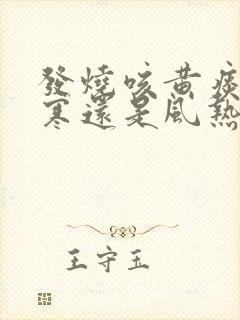 發燒咳黃痰
寒還是風熱
王守玉